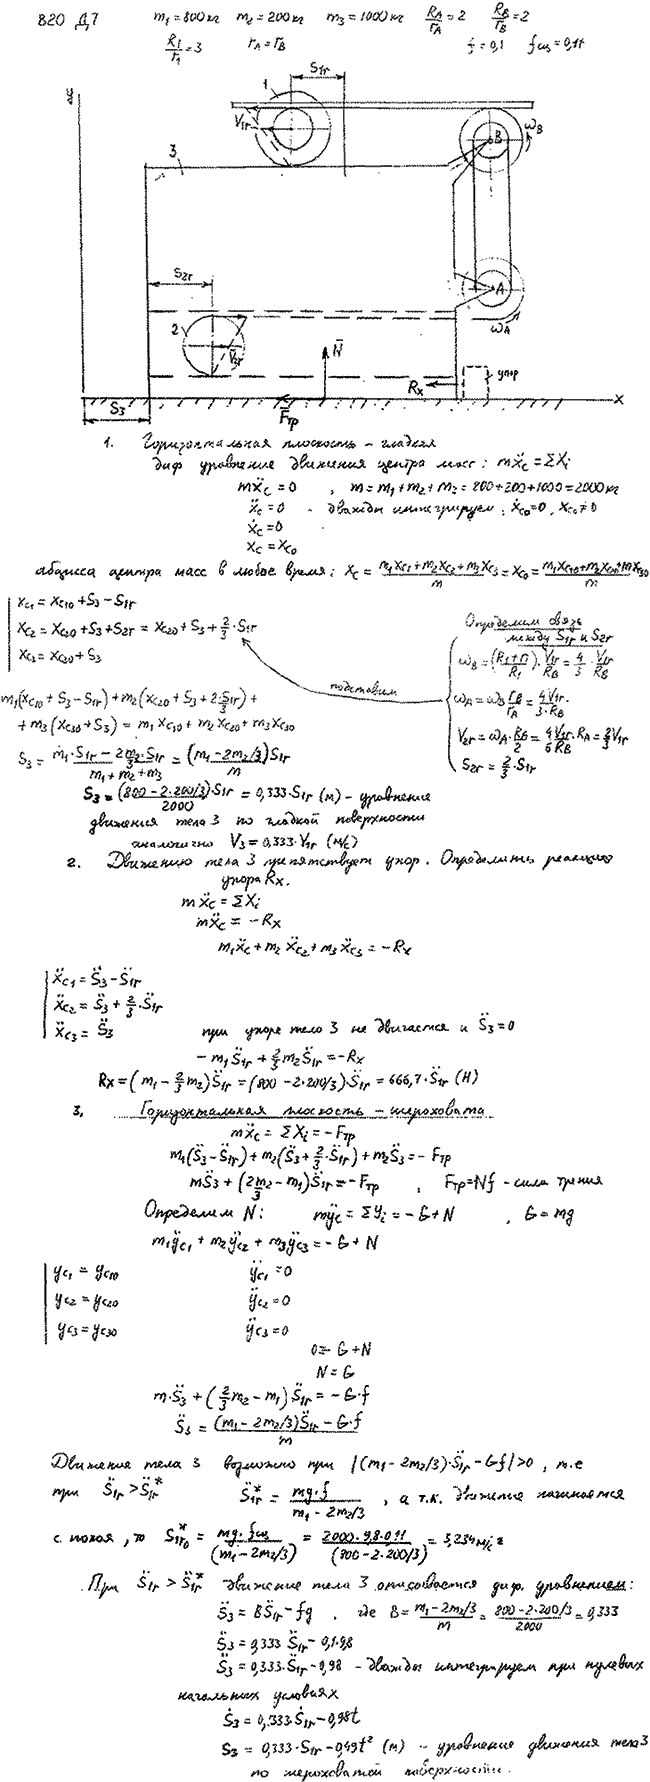 В20 Д7 m₁=800кг m₂=200кг m₃=1000кг R_A/r_A=2 R_B/r_B=2
R₁/r₁=3 r_A=r_B f=0,1 f_сц=0,11
S₁r
y
1
V₁r
ω_B
B
3
S₂r
A
ω_A
2
V̄₂r
N̄
Rx
упор
S₃
F̄тр
x
1. Горизонтальная плоскость – гладкая
диф уравнение движения центра масс: mẍc = ΣXi
mẍc = 0 , m = m₁+m₂+m₃ = 800+200+1000 = 2000 кг
ẍc = 0 - дважды интегрируем, ẋco=0, xco≠0
ẋc = 0
xc = xco
абсцисса центра масс в любое время: xc = (m₁xc₁+m₂xc₂+m₃xc₃)/m = xco = (m₁xc10+m₂xc20+m₃xc30)/m
xc₁ = xc10 + S₃ - S₁r
xc₂ = xc20 + S₃ + S₂r = xc20 + S₃ + 2/3·S₁r
xc₃ = xc30 + S₃
Определим связь
между S₁r и S₂r
ω_B = ((R₁+r₁)/R₁)·V₁r/R_B = 4/3·V₁r/R_B
подставим
ω_A = ω_B r_B/r_A = 4V₁r/3·R_B
V₂r = ω_A·R_A/2 = 4V₁r/6R_B·R_A = 2/3V₁r
S₂r = 2/3·S₁r
m₁(xc10 + S₃ - S₁r) + m₂(xc20 + S₃ + 2/3·S₁r) +
+ m₃(xc30 + S₃) = m₁xc10 + m₂xc20 + m₃xc30
S₃ = (m₁·S₁r - 2m₂/3·S₁r)/(m₁+m₂+m₃) = (m₁-2m₂/3)S₁r/m
S₃ = (800-2·200/3)/2000·S₁r = 0,333·S₁r (м) – уравнение
движения тела 3 по гладкой поверхности
аналогично V₃ = 0,333·V₁r (м/с)
2. Движению тела 3 препятствует упор. Определить реакцию
упора Rx.
mẍc = ΣXi
mẍc = -Rx
m₁ẍc + m₂ẍc₂ + m₃ẍc₃ = -Rx
ẍc₁ = S̈₃ - S̈₁r
ẍc₂ = S̈₃ + 2/3·S̈₁r
ẍc₃ = S̈₃ при упоре тело 3 не двигается и S̈₃=0
- m₁S̈₁r + 2/3m₂S̈₁r = -Rx
Rx = (m₁ - 2/3m₂)S̈₁r = (800-2·200/3)·S̈₁r = 666,7·S̈₁r (Н)
3. Горизонтальная плоскость – шероховата
mẍc = ΣXi = -Fтр
m₁(S̈₃-S̈₁r) + m₂(S̈₃+2/3·S̈₁r) + m₂S̈₃ = -Fтр
mS̈₃ + (2m₂/3-m₁)S̈₁r = -Fтр , Fтр=Nf - сила трения
Определим N: mÿc = ΣYi = -G+N , G=mg
m₁ÿc₁ + m₂ÿc₂ + m₃ÿc₃ = -G+N
yc₁ = yc10 ÿc₁ = 0
yc₂ = yc20 ÿc₂ = 0
yc₃ = yc30 ÿc₃ = 0
0 = -G+N
N = G
m·S̈₃ + (2/3m₂-m₁)S̈₁r = -G·f
S̈₃ = ((m₁-2m₂/3)S̈₁r - G·f)/m
Движение тела 3 возможно при |(m₁-2m₂/3)·S̈₁r - Gf|>0, т.е
при S̈₁r > S̈₁r* S̈₁r* = mg·f/(m₁-2m₂/3) , а т.к. движение начинается
с покоя, то S̈₁r₀* = mg·fсц/(m₁-2m₂/3) = 2000·9,8·0,11/(800-2·200/3) = 3,234 м/с²
При S̈₁r > S̈₁r* движение тела 3 описывается диф. уравнением:
S̈₃ = BS̈₁r - fg , где B = (m₁-2m₂/3)/m = (800-2·200/3)/2000 = 0,333
S̈₃ = 0,333 S̈₁r - 0,1·9,8
S̈₃ = 0,333·S̈₁r - 0,98 - дважды интегрируем при нулевых
начальных условиях
Ṡ₃ = 0,333·Ṡ₁r - 0,98t
S₃ = 0,333·S₁r - 0,49t² (м) - уравнение движения тела 3
по шероховатой поверхности.